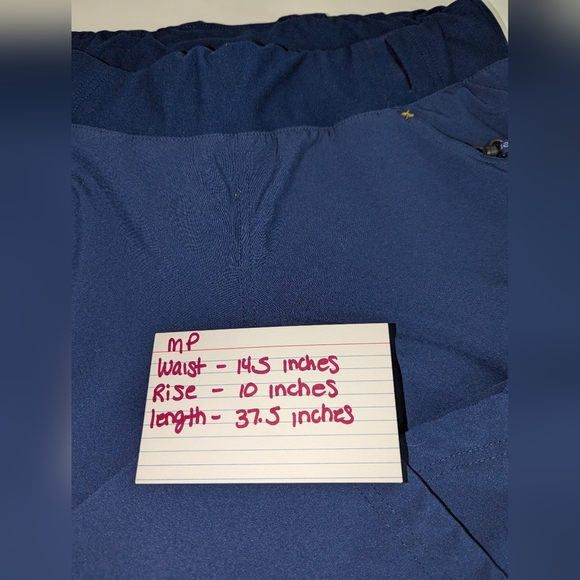 MP
Waist - 14.5 inches
Rise - 10 inches
length - 37.5 inches